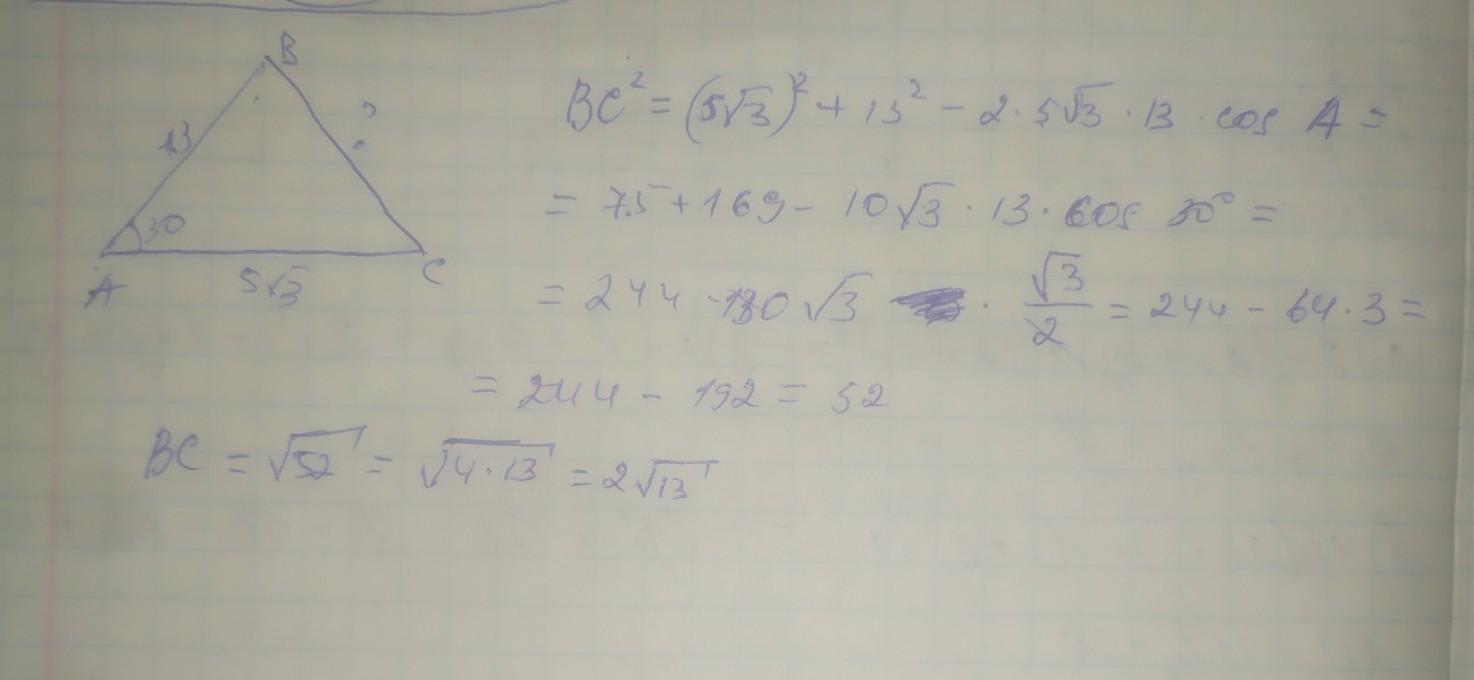 B
13
?
30
A
5√3
C
BC² = (5√3)² + 13² - 2·5√3·13·cos A =
= 75 + 169 - 10√3·13·cos 30° =
= 244 - 130√3 · √3/2 = 244 - 64·3 =
= 244 - 192 = 52
BC = √52 = √4·13 = 2√13